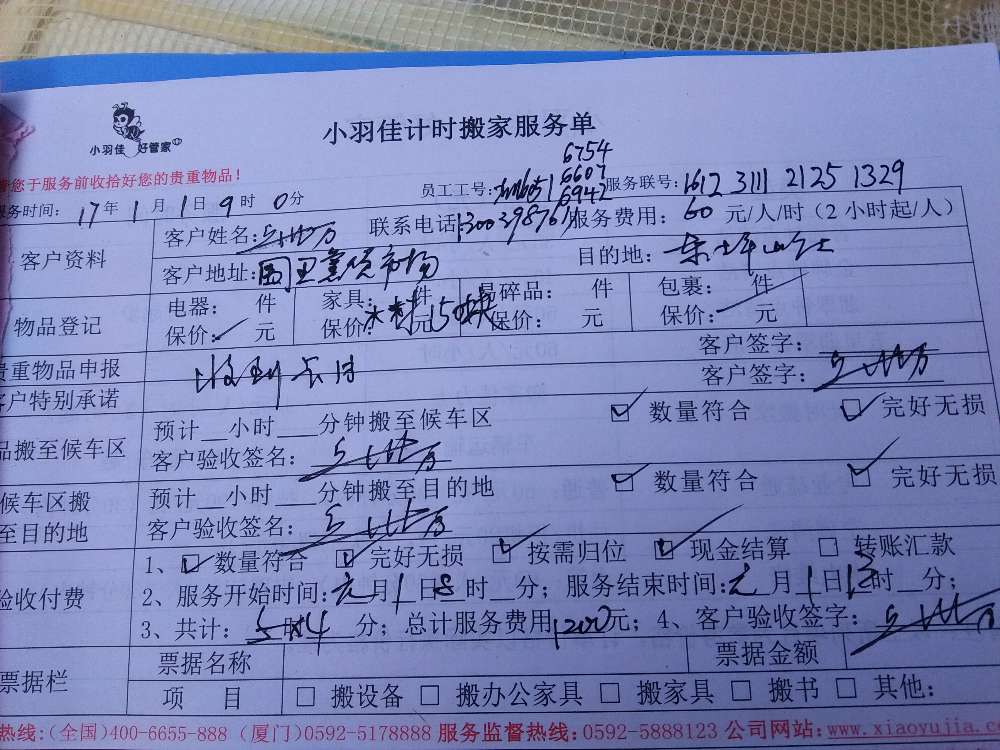 小羽佳 好管家
小羽佳计时搬家服务单
您于服务前收拾好您的贵重物品!
6754
6607
员工工号: 6942 服务联号: 1612 3111 2125 1329
服务时间: 17年1月1日9时0分
客户资料 客户姓名: 联系电话: 服务费用: 60元/人/时(2小时起/人)
客户地址: 市场 目的地:
物品登记 电器: 件 家具: 件 易碎品: 件 包裹: 件
保价: 元 保价:木材 元150块 保价: 元 保价: 元
贵重物品申报 客户签字:
客户特别承诺 客户签字:
品搬至候车区 预计__小时___分钟搬至候车区 ☑ 数量符合 ☑ 完好无损
客户验收签名:
候车区搬 预计__小时___分钟搬至目的地 ☑ 数量符合 ☑ 完好无损
至目的地 客户验收签名:
验收付费 1、☑ 数量符合 ☑ 完好无损 ☑ 按需归位 ☑ 现金结算 □ 转账汇款
2、服务开始时间:元月1日8时__分; 服务结束时间:元月1日13时__分;
3、共计: 5 4 分; 总计服务费用1200元; 4、客户验收签字:
票据栏 票据名称 票据金额
项 目 □ 搬设备 □ 搬办公家具 □ 搬家具 □ 搬书 □ 其他:
热线:(全国)400-6655-888 (厦门)0592-5178888 服务监督热线:0592-5888123 公司网站:www.xiaoyujia.c